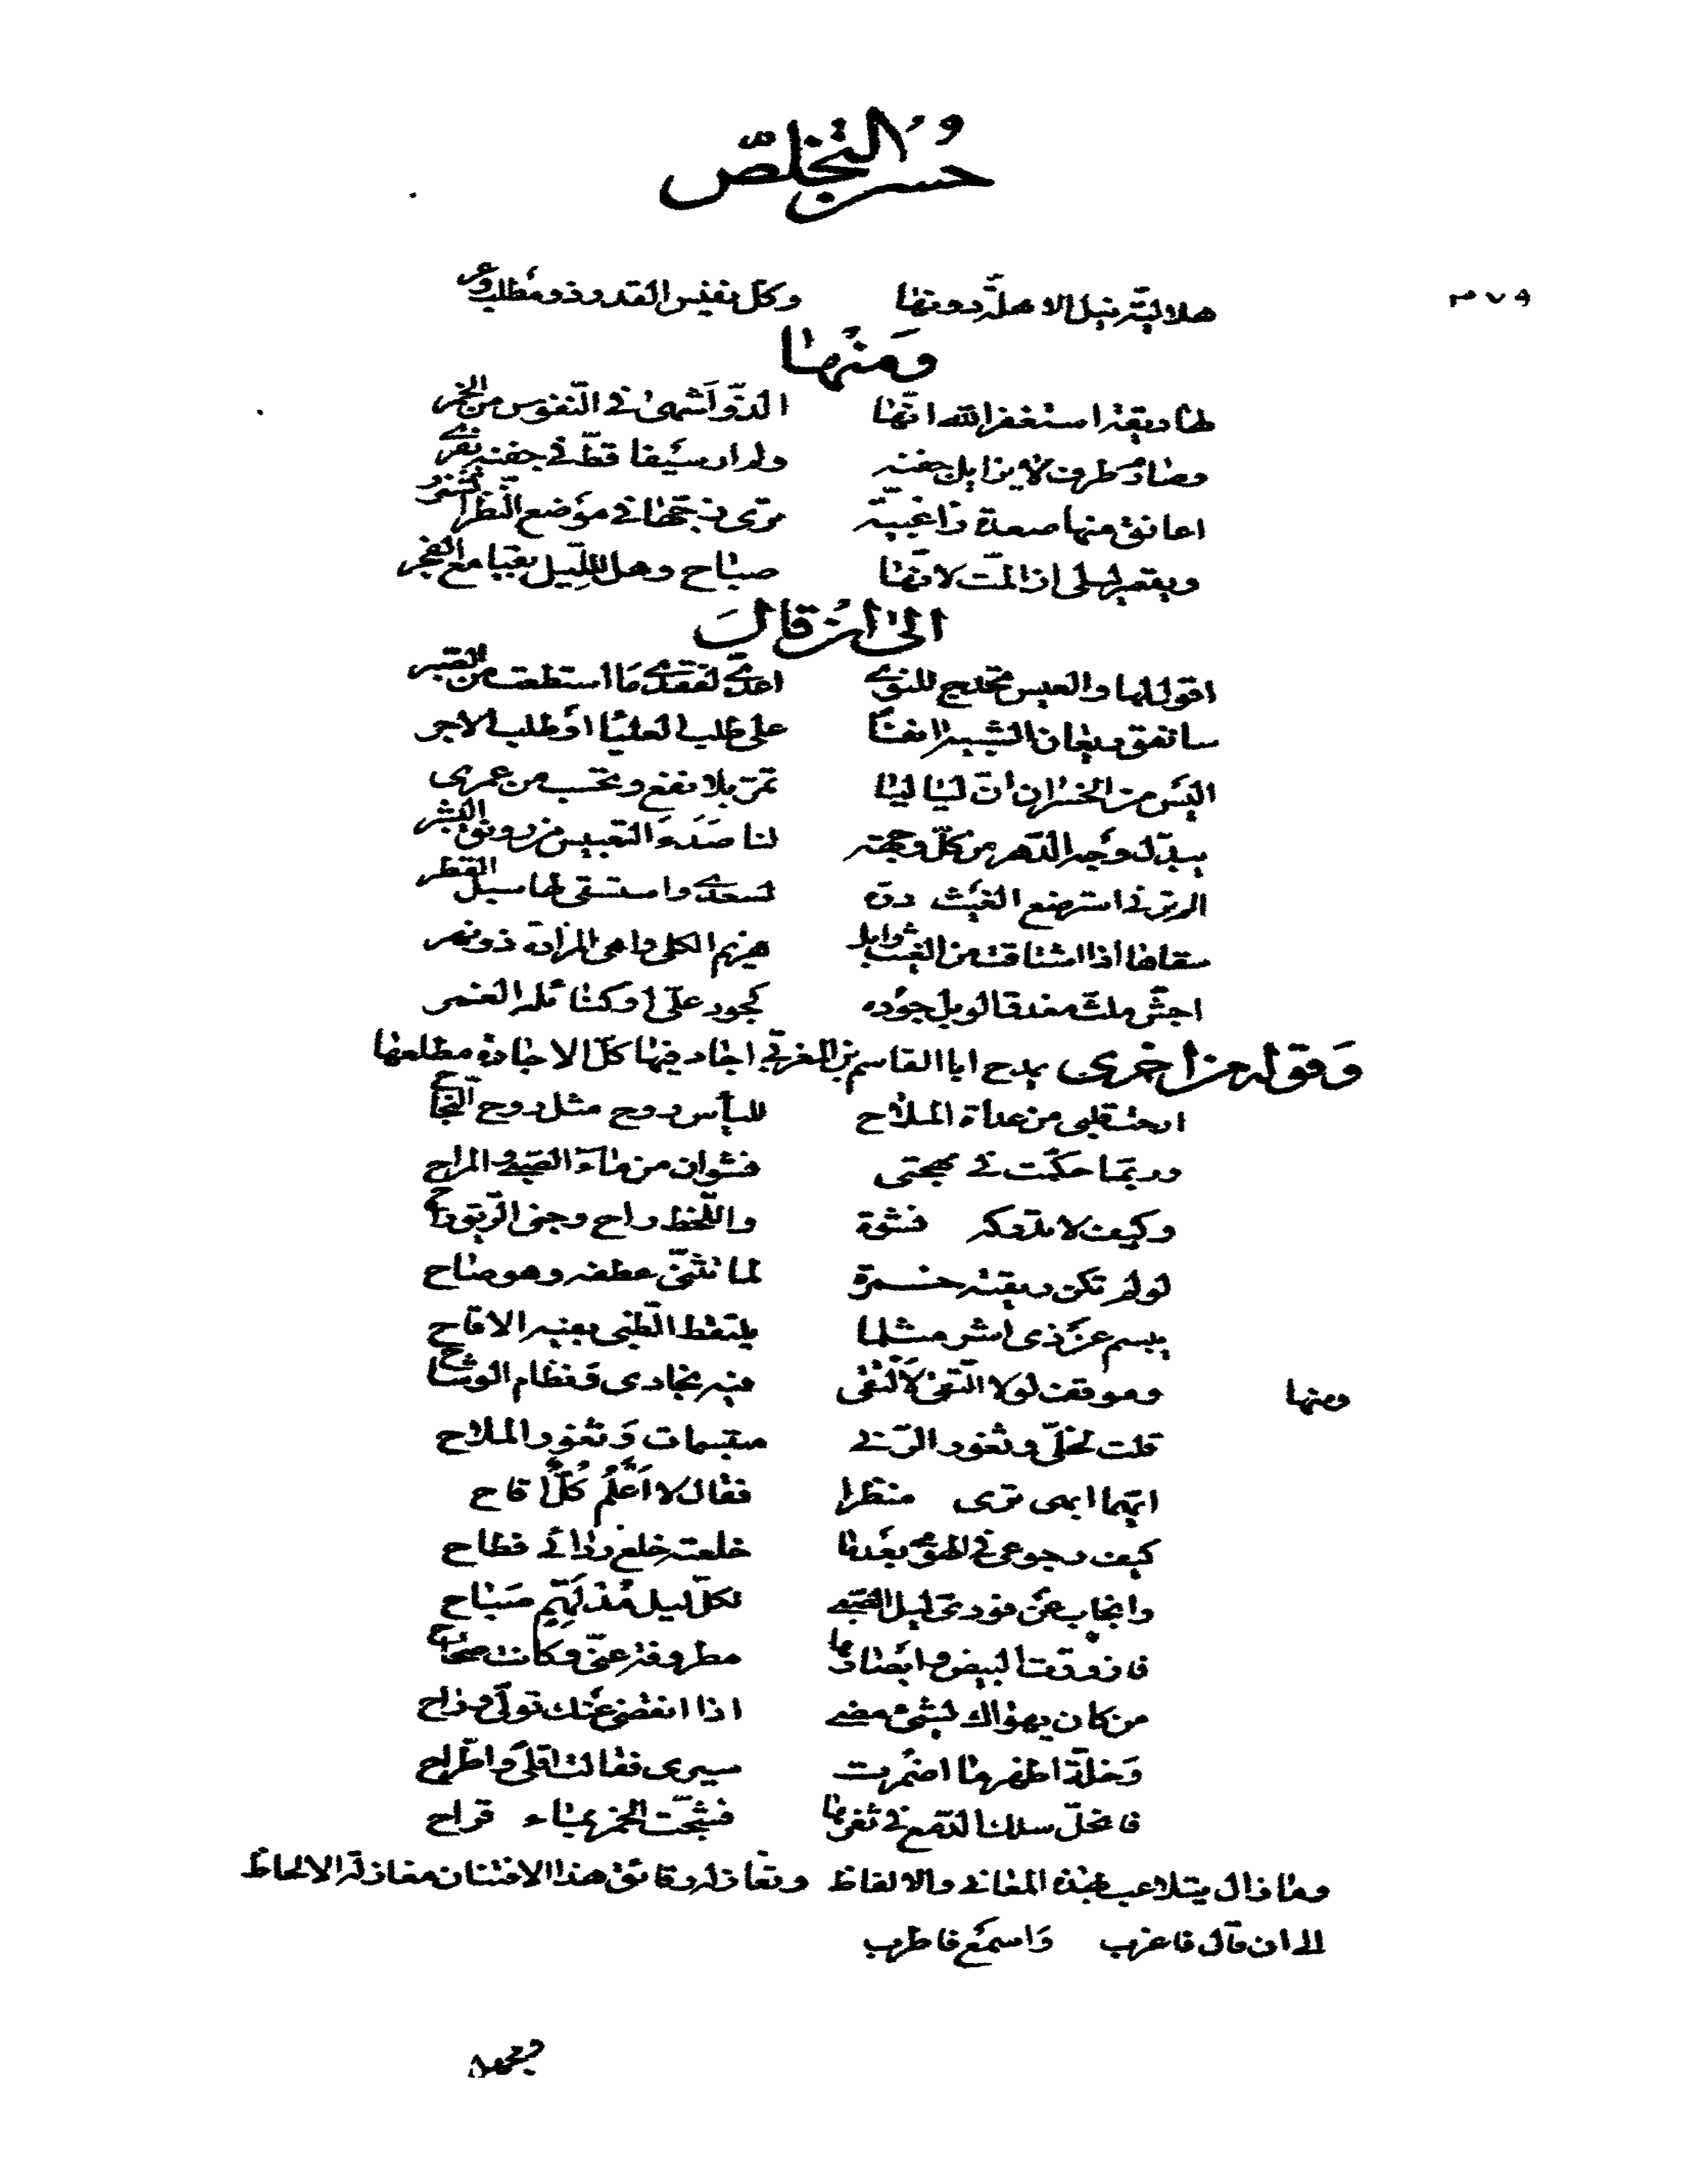 حسن التخلص
هلالية نيل الاهلة دونها وكل نفيس القدر ذو مطلب وعر
٣٧٩
ومنها
لها ريقة استغفر الله انها الذ واشهى في النفوس من الخمر
وصارم طرف لا يزايل جفنه ولم ار سيفا قط في جفنه يفري
اعانق منها صعدة زاغبية ترى زجها في موضع النظر الشزر
ويقصر ليلي اذ المت لانها صباح وهل لليل بقيا مع الفجر
الى ان قال
اقول لها والعيس تحدج للنوى اعدي لفقدي ما استطعت من الصبر
سانفق ريعان الشبيبة انفا على طلب العليا او طلب الاجر
اليس من الخسران ان لياليا تمر بلا نفع وتحسب من عمري
يبدل وجه الدهر من كل وجهة لنا صدء التعبيس من رونق البشر
الم ترني استرضع الغيث دره لسعدى واستسقى لها سبل القطر
سقاها اذا اشتاقت من الغيث وابل هزيم الكلى واهى المزادة ذو نهمر
اجش ملث مغدقا لوبل جوده كجود علي او كنائله الغمر
وقوله من اخرى يمدح ابا القاسم بن المغربي اجاد فيها كل الاجادة مطلعها
ارحت قلبي من عداة الملاح لليأس روح مثل روح النجاح
وربما حكمت في مهجتي نشوان من ماء الصبى والمراح
وكيف لا تدركه نشوة واللحظ راح وجنى الريق راح
لو لم تكن ريقته خمرة لما تثنى عطفه وهو صاح
يبسم عن ذي اشر مثلما يلتقط الظبي بفيه الاقاح
ومنها
وموقف لولا التقى لالتقى فيه نجادي ونظام الوشاح
قلت لخلي وثغور الربى مبتسمات وثغور الملاح
ايهما ابهى ترى منظرا فقال لا اعلم كل اقاح
كيف رجوعي في الهوى بعدما خلعته خلع ردائي فطاح
وانجاب عن فودي ليل الصبى لكل ليل مدلهم صباح
فازورت البيض وابصارها مطروفة عني وكانت صحاح
من كان يهواك لشيء مضى اذا انقضى عنك تولى وراح
وخلة اظهر ما اضمرت سيري فقالت اقلى واطراح
فانحل سلك الدمع في ثغرها فشجت الخمر بماء قراح
وما زال يتلاعب بهذه المعاني والالفاظ وتغازله رقائق هذا الافتنان مغازلة الالحاظ
الى ان قال فاغرب واسمع فاطرب